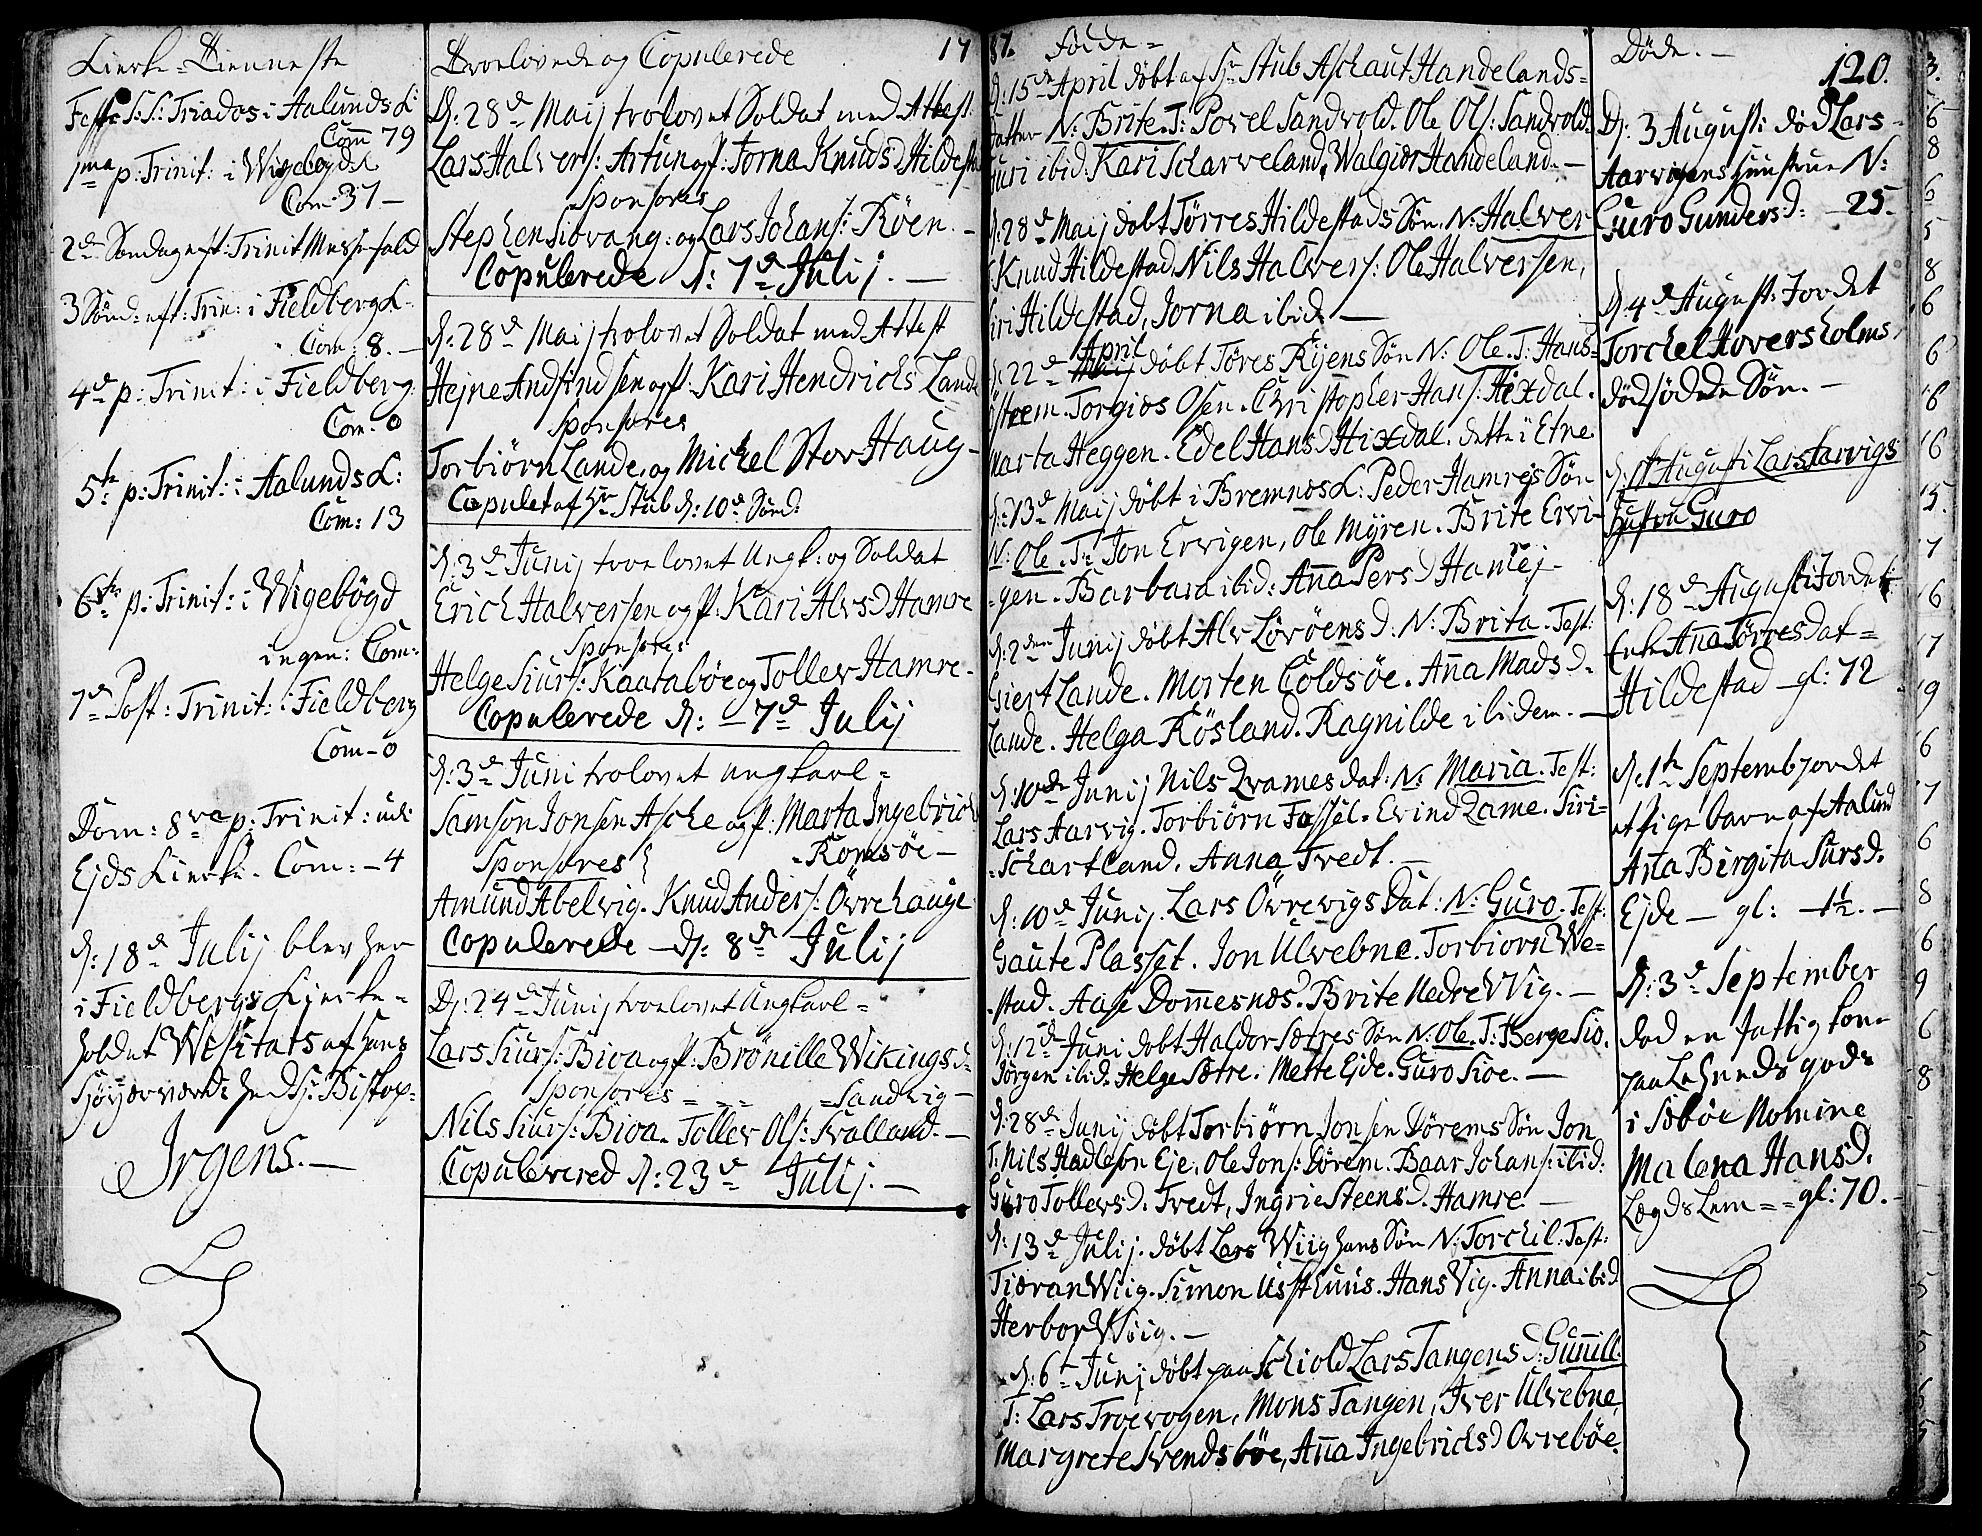 Kierke-Tienneste
Festo S: S: Triados i Aalunds K:
Com 79
1ma p: Trinit: i Wigebøgds K
Com: 37 –
2d Søndag eft: Trinit Messefald
3 Sönd: eft: Trin: i Fieldberg K.
Com: 8. –
4de p: Trinit: i Fieldberg
Com. 0
5te p: Trinit: i Aalunds K:
Com: 13
6te p: Trinit: i Wigebögd
ingen: Com:
7de Post: Trinit: i Fieldberg
Com – 0
Dom: 8va p: Trinit: udi
Ejds Kierke. Com: – 4
D: 18de Julij blev her
i Fieldbergs Kierke-
holdet Visitats af hans
Højærværdh: Hr Bishop
Irgens. –
Troelovede og Copulerede
17
D: 28de Maij trolovet Soldat med Attest:
Lars Halvers: Artun og p: Jorna Knuds D Hildesta
Sponsores
Stephen Siovang: og Lars Johans: Röen. –
Copulerede d: 7de Julij. –
D: 28de Maij trolovet Soldat med Attest
Hejne Andfindsen og p: Kari Hendrichs Lande
Sponsores
Torbiörn Lande, og Michel Stor Haug –
Copulet af Hr Stub d: 10de Sönd:
D: 3de Junij troelovet Ungk: og Soldat
Erich Halversen og p: Kari Alvs D Hamre
Sponsores
Helge Siurs: Kaataböe og Tollev Hamre –
Copulerede d: – 7de Julij
D: 3de Juni trolovet Ungkarl =
Samson Jonsen Asche og p: Marta Ingebrich
Sponsores – Romsöe –
Amund Abelvig. Knud Anders: Övre Hauge
Copulerede – D: 8de Julij
D: 24de Junij troelovet Ungkarl =
Lars Siurs: Bioa og p: Brönille Wikings D:
Sponsores = – – = Sandvig –
Nils Siurs: Bioa – Tollev Ols: Svalland. –
Copulerered d: 23de Julij. –
87. Födde =
D: 15de April döbt af Hr Stub Aschaut Handelands=
datter N: Brite. T: Povel Sandvold. Ole Ols: Sandvold.
Guri ibid. Kari Scharveland, Walgier Handeland. –
D: 28de Maij döbt Törres Hildestads Sön. N: Halver
T: Knud Hildestad, Nils Halvers: Ole Halversen,
Siri Hildestad, Jorna ibid. –
April
D: 22de Maij döbt Töres Ryens Sön N: Ole. T: Hans
Torgios Osen. Christopher Hans: Hixdal.
Marta Heggen. Edel Hans D Hixdal. dette i Etne
D: 13de Maij döbt i Bremnæs K: Peder Hamres Sön
N: Ole. T: Jon Ervigen, Ole Myren. Brite Ervi-
=gen. Barbara ibid: Anna Pers D Hamej.
D: 2den Junij döbt Alv Lövöens D: N: Brita. Test:
Giert Lande. Morten Coldsöe. Anna Mads D.
Lande. Helga Rösland. Ragnilde ibidem. –
D: 10de Junij Nils Qvames dat: N: Maria. Test:
Lars Aarvig. Torbiörn Fossel. Evind Qame. Siri=
=Schartland. Anna Tvedt. –
D: 10de Junij. Lars Övrevigs Dat: N: Guro. Test:
Gaute Plasset. Jon Ulvebne. Torbiorn We=
=stad. Aase Dommesnes. Brite Nedre Wig. –
D: 12de Juni döbt Haldor Sætres Sön N: Ole. T: Berge Sio.
Jörgen ibid. Helge Sætre. Mette Ejde. Guro Sioe. –
D: 28de Junij döbt Torbiörn Jonsen Dörems Sön Jon
T: Nils Hadleson Eje. Ole Jons: Dörem. Baar Johans: ibid:
Guro Tollevs D. Tvedt, Ingrie Steens D. Hamre. –
D: 13de Julij. döbt Lars Wiig hans Sön N: Torchil. Test:
Tioran Wiig. Simon Ussthuus. Hans Vig. Anna ibid
Herbor Wiig. –
D: 6te Junij döbt paa Schiold Lars Tangens D: Gunnill.
T: Lars Troevogen, Mons Tangen, Iver Ulvebne,
Margrete Svendsböe, Anna Ingebrichs D Ovreböe.
Døde. –
120.
D: 3 Augusti död Lars
Aarvigens Huustrue N:
Guro Gunders D: – 25.
D: 4de August: Jordet
Torchel Hovers Holms
dödfødde Sön. –
D: 1te Augusti Lars Aarvigs
Hustru Guro
D: 18de Augusti Jordet
Enke Anna Törres Dat =
Hildestad – gl: 72
D: 1te Septemb Jordet
et Pigebarn af Aalund
Anna Birgita Siurs D.
Ejde – gl: – 1½. –
D: 3de September
död en fattig kone
paa Lehnets gods
i Söböe Nomine
Malena Hans D.
Lægds Lem = = gl: 70. –